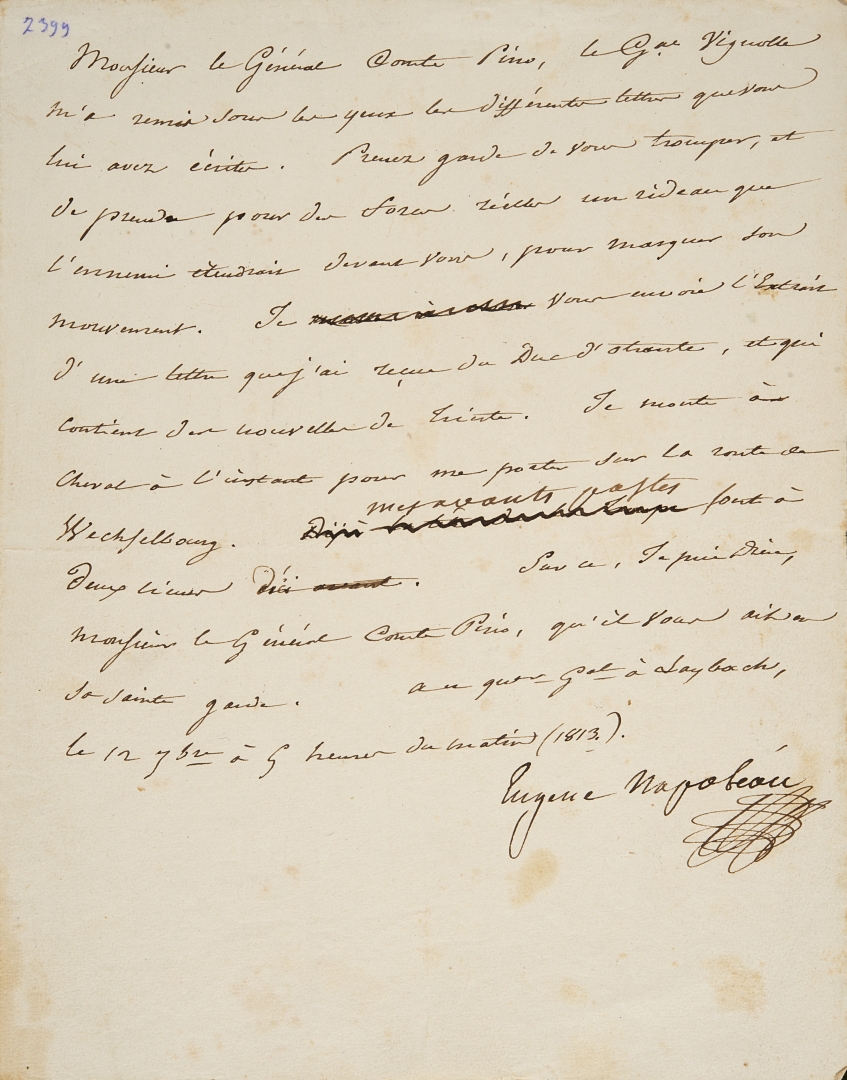 2399
Monsieur le Général Comte Pino, le Gal Vignolle
m'a remis sous les yeux les différentes lettres que vous
lui avez écrites. Prenez garde de vous tromper, et
de prendre pour des forces réelles un rideau que
l'ennemi étendrait devant vous, pour masquer son
mouvement. Je vous envoie l'Extrait
d'une lettre que j'ai reçue du Duc d'otrante, et qui
contient des nouvelles de Trieste. Je monte à
cheval à l'instant pour me porter sur la route de
mes avants postes
Wechselbourg. Déjà sont à
deux lieues d'ici avant. Sur ce, Je prie Dieu,
Monsieur le Général Comte Pino, qu'il vous ait en
sa sainte garde. au quer gal à Laybach,
le 12 7bre à 5 heures du matin (1813).
Eugene Napoléon